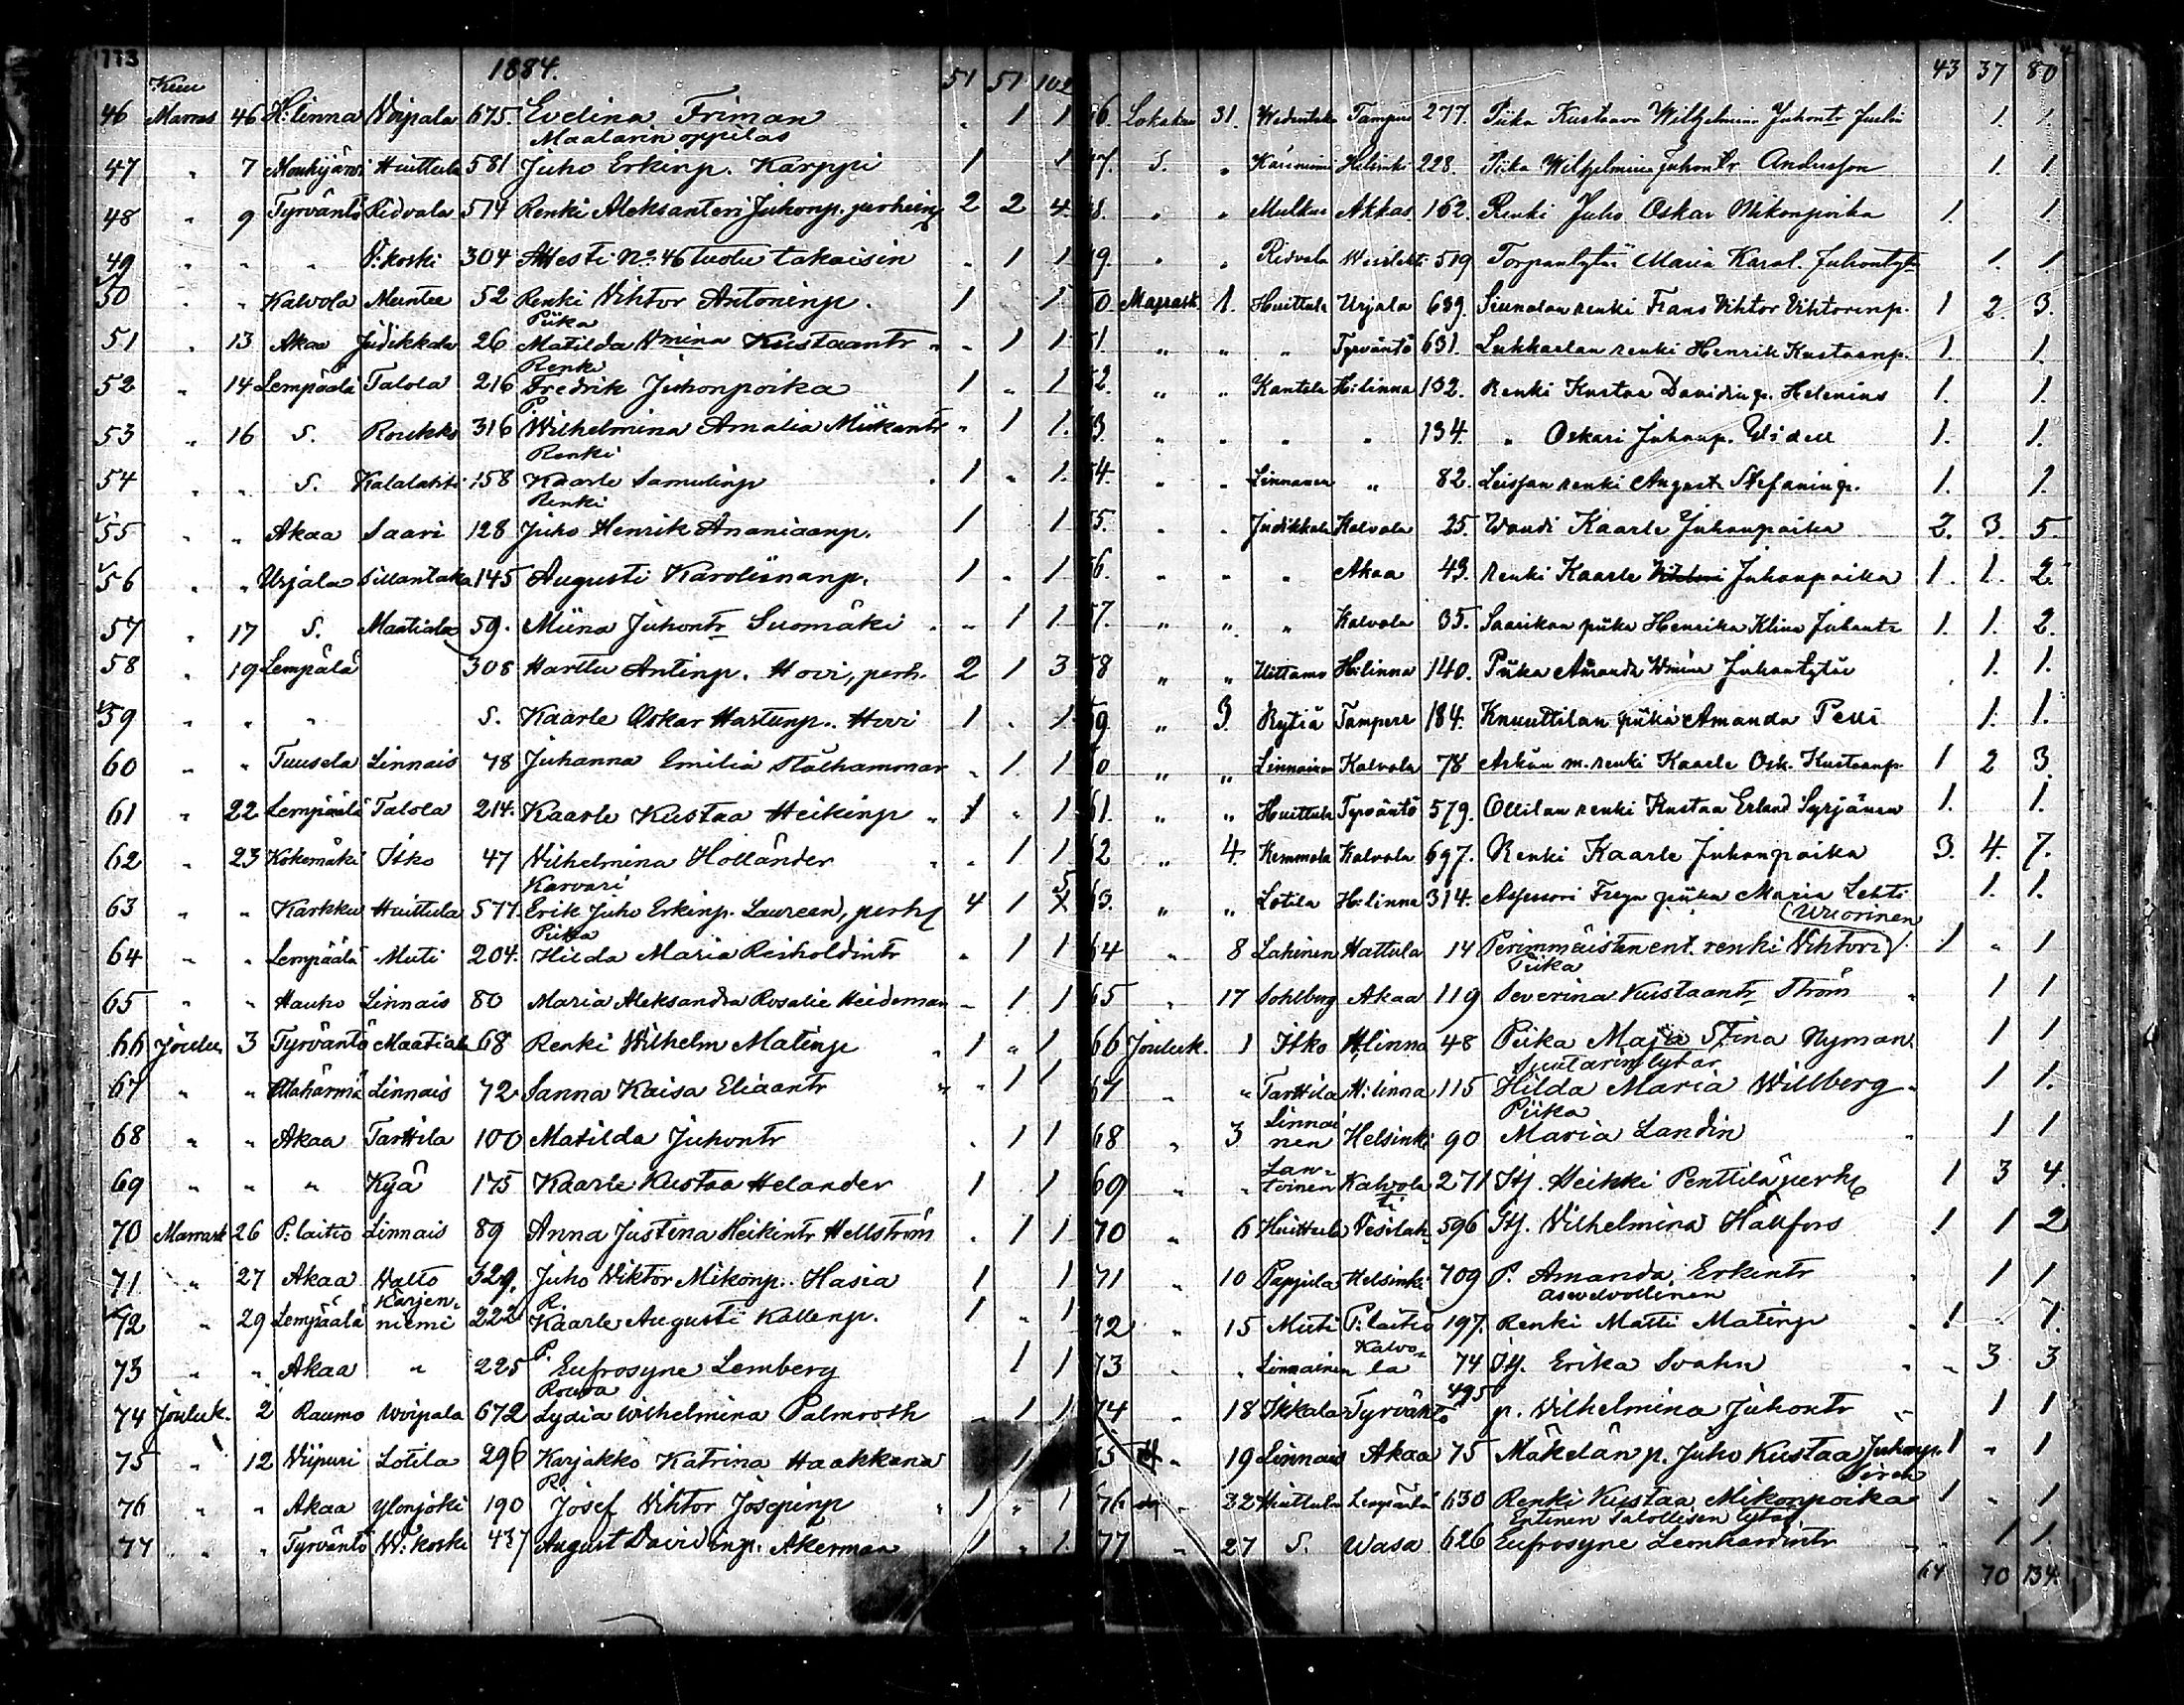 113
1884.
51 51 102
Kuu
46 Marras 46 H:linna Voipala 675. Evelina Friman " 1 1
Maalarin oppilas
47 " 7 Mouhijärvi Huittula 581 Juho Erkinp. Karppi 1 1
48 " 9 Tyrväntö Ridvala 574 Renki Aleksanteri Juhonp. perheinee 2 2 4
49 " " " V:koski 304 Attesti No 46 tuotu takaisin " 1 1
50 " " Kalvola Mentee 52 Renki Vihtor Antoninp. 1 1
Piika
51 " 13 Akaa Judikkala 26 Matilda Vmina Kustaantr " 1 1
Renki
52 " 14 Lempäälä Talola 216 Fredrik Juhonpoika 1 " 1
P.
53 " 16 S. Roukko 316 Wilhelmina Amalia Miikantr " 1 1.
Renki
54 " " S. Kalalahti 158 Kaarle Samulinp 1 " 1.
Renki
55 " " Akaa Saari 128 Juho Henrik Ananiaanp. 1 1
56 " " Urjala Sillantaka 145 Augusti Karoliinanp. 1 " 1
57 " 17 S. Maatiala 59. Miina Juhontr Suomäki " 1 1
58 " 19 Lempälä 308 Harttu Antinp. Hovi, perh. 2 1 3
59 " " " S. Kaarle Oskar Hartunp. Hovi 1 " 1
60 " " Tuusela Linnais 78 Juhanna Emilia Stålhammar " 1 1
61 " 22 Lempäälä Talola 214. Kaarle Kustaa Heikinp 1 " 1
62 " 23 Kokemäki Itko 47 Vilhelmina Holländer " 1 1
Karvari 5
63 " " Karkku Huittula 577. Erik Juho Erkinp. Laureen, perh 4 1
Piika
64 " " Lempäälä Muti 204. Hilda Maria Reiholdintr " 1 1
65 " " Hauho Linnais 80 Maria Aleksandra Rosalie Heideman " 1 1
66 Joulu 3 Tyrväntö Maatiala 68 Renki Wilhelm Matinp 1 " 1
67 " " Alahärmä Linnais 72. Sanna Kaisa Eliaantr " 1 1
68 " " Akaa Tarttila 100 Matilda Juhontr " 1 1
69 " " " Kyä 175 Kaarle Kustaa Helander 1 1
70 Marrask 26 P:laitio Linnais 89 Anna Justina Heikintr Hellström " 1 1
71 " 27 Akaa Valto 329. Juho Viktor Mikonp. Hasia 1 1
Kärjen- R.
72 " 29 Lempäälä niemi 222 Kaarle Augusti Kallenp. 1 " 1
P.
73 " " Akaa " 225 Eufrosyne Lemberg 1 1
Rouva
74 Jouluk. 2 Raumo Woipala 672 Lydia Wilhelmina Palmroth " 1 1
75 " 12 Viipuri Lotila 296 Karjakko Katrina Haakkana 1
R.
76 " " Akaa Ylönjoki 190 Josef Vihtor Josepinp 1 " 1
77 " " Tyrväntö W:koski 437 August Davidinp. Akerman 1 " 1.
43 37 80
46. Lokakuu 31. Tampere 277. Piika Kustaava Wilhelmina Juhontr 1. 1.
47. S. " Helsinki 228. Piika Wilhelmina Juhontr Andersson 1. 1
48. " " Akkas 162. Renki Juho Oskar Mikonpoika 1. 1
49. " " Ridvala Wesilahti 519 Torpantytär Maria Karol. Juhontyt 1. 1.
50. Marrask. 1. Huittula Urjala 639. Siunolan renki Frans Vihtor Vihtorinp. 1 2. 3.
51. " " " Tyrväntö 631. Lukkarlan renki Henrik Kustaanp. 1. 1.
52. " " Kantela H:linna 132. Renki Kustaa Davidinp. Helenius 1. 1.
53. " " " " 134. " Oskari Juhanp. Widell 1. 1.
54. " " Linnanen " 82. Leissan renki August Stefaninp. 1. 1.
55. " " Judikkala Kalvola 25. Woudi Kaarle Juhanpoika 2. 3. 5.
56. " " " Akaa 43. Renki Kaarle Juhanpoika 1. 1. 2.
57. " " " Kalvola 35. Saarikon piika Henrika Klina Juhantr 1. 1. 2.
58 " " Uittamo H:linna 140. Piika Amanda Wmina Juhantytär 1. 1.
59. " 3. Rytiä Tampere 184. Knuuttilan piika Amanda Pelli 1. 1.
60 " " Linnainen Kalvola 78 Arkin m. renki Kaarle Osk. Kustaanp. 1 2 3
61. " " Huittula Tyrväntö 579. Ollilan renki Kustaa Erland Syrjänen 1. 1.
62 " 4. Kemmola Kalvola 697. Renki Kaarle Juhanpoika 3. 4. 7.
63. " " Lotila H:linna 314. Assessori piika Maria Lehti 1. 1.
(Wuorinen
64 " 8 Lahinen Hattula 14 Perimmäisten ent. renki Vihtori 1 " 1
Piika
65 " 17 Sohlberg Akaa 119 Severina Kustaantr Ström 1 1
66 Jouluk. 1 Itko H:linna 48 Piika Maja Stina Nyman. 1 1
Suutarin tytär
67 " " Tarttila H:linna 115 Hilda Maria Willberg 1 1.
Linnai Piika
68 " 3 nen Helsinki 90 Maria Landin 1 1
Lan-
69 " " toinen Kalvola 271 Itj. Heikki Penttilä perh 1 3 4.
ti
70 " 6 Huittula Vesilah- 596 Itj. Vilhelmina Hällfors 1 1 2
71 " 10 Pappila Helsinki 709 P. Amanda Erkintr 1 1
Asevelvollinen
72 " 15 Muti P:laitio 197. Renki Matti Matinp 1 " 1.
Kalvo-
73 " " Linnainen la 74 Itj. Erika Svahn " 3 3
495
74 " 18 Ikkala Tyrväntö p. Vilhelmina Juhontr 1 1
75 " 19 Linnais Akaa 75 Mäkelän p. Juho Kustaa Juhonp. 1 " 1
Siren
76 " 22 Huittula Lempäälä 630 Renki Kustaa Mikonpoika 1 " 1
Entinen talollisen tytär
77 " 27 S. Wasa 626 Eufrosyne Leonhardintr 1 1.
64 70 134.